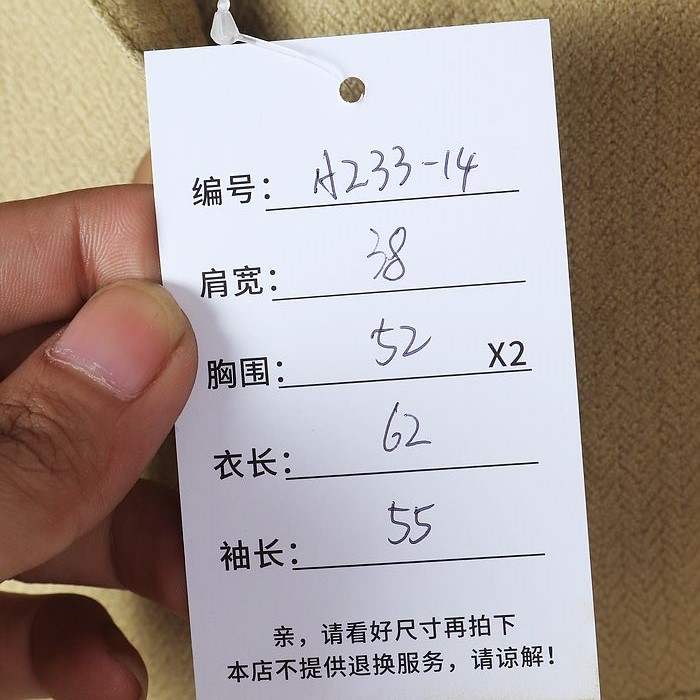 编号：A233-14
肩宽：38
胸围：52 X2
衣长：62
袖长：55
亲，请看好尺寸再拍下
本店不提供退换服务，请谅解！